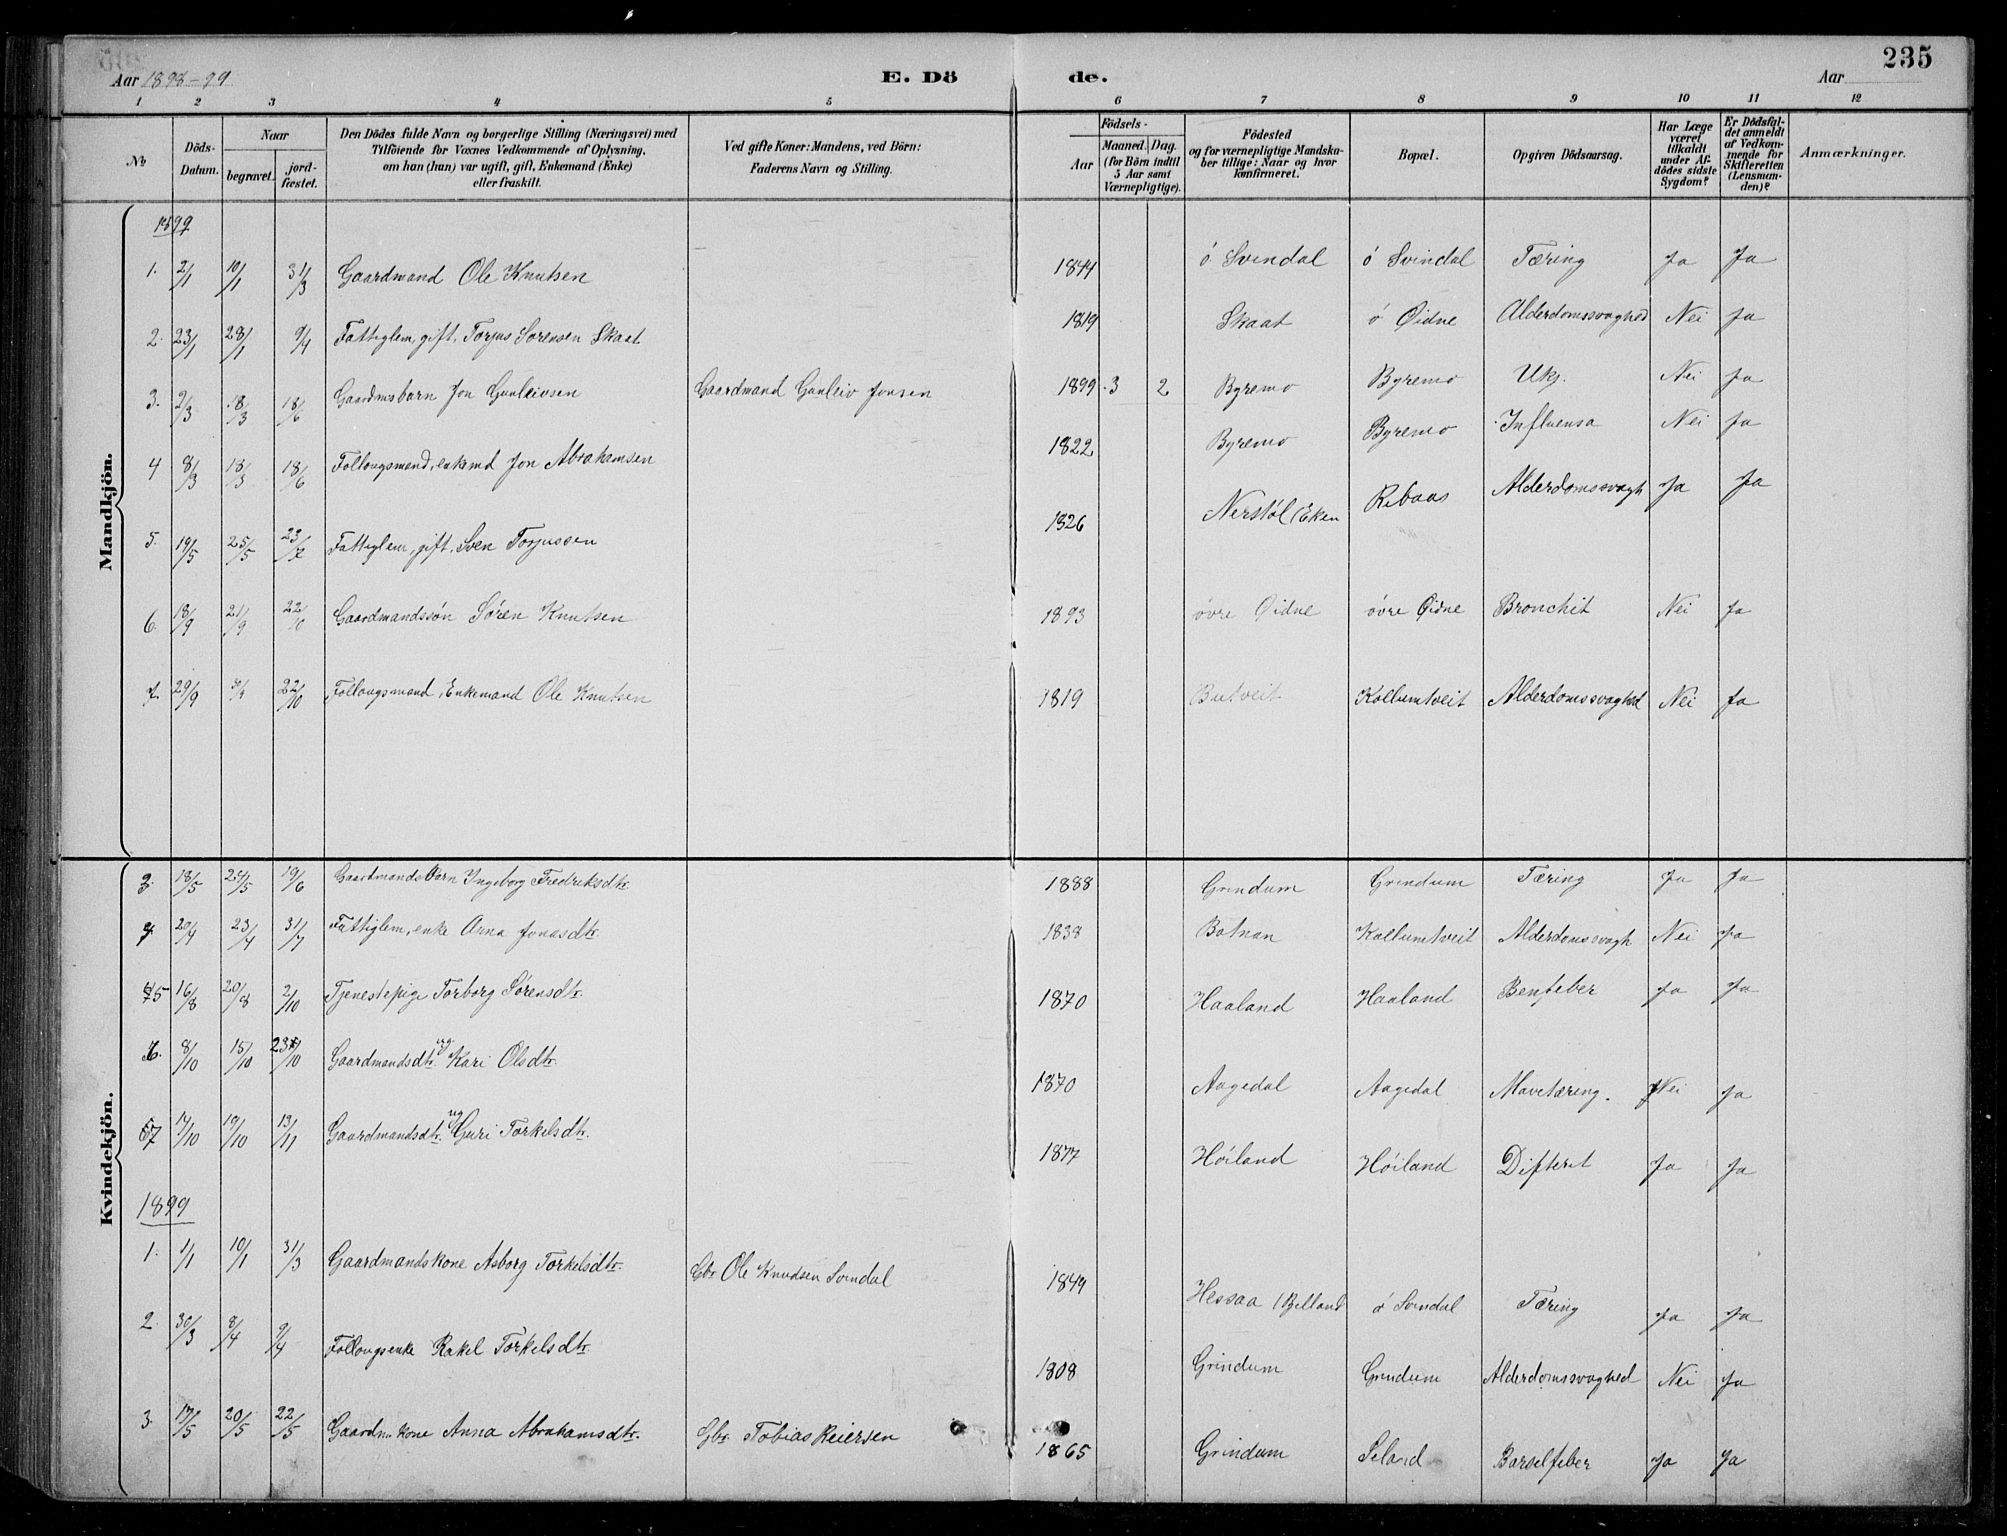 235
Aar 1898-99 E. Dö de. Aar
1 2 3 4 5 6 7 8 9 10 11 12
No Döds-Datum. Naar begravet. jord-fæstet. Den Dödes fulde Navn og borgerlige Stilling (Næringsvei) med Tilföiende for Voxnes Vedkommende af Oplysning, om han (hun) var ugift, gift, Enkemand (Enke) eller fraskilt. Ved gifte Koner: Mandens, ved Börn: Faderens Navn og Stilling. Födsels- Aar Maaned. Dag. (for Börn indtil 5 Aar samt Værnepligtige). Födested og for værnepligtige Mandska-ber tillige: Naar og hvor Konfirmeret. Bopæl. Opgiven Dödsaarsag. Har Læge været tilkaldt under Af-dödes sidste Sygdom? Er Dödsfal-det anmeldt af Vedkom-mende for Skifteretten (Lensman-den)? Anmærkninger.
Mandkjön.
1899
1. 2/1 10/1 31/3 Gaardmand Ole Knutsen 1844 ó Svindal ó Svindal Tæring Ja Ja
2. 23/1 28/1 9/4 Fattiglem, gift, Torjus Sørensen Skaat 1819 Skaat ó Øidne Alderdomssvaghed Nei Ja
3. 2/3 18/3 18/6 Gaardmsbarn Jon Gunleivsen Gaardmand Gunleiv Jonsen 1899 3 2 Byremo Byremo Ukj. Nei Ja
4 8/3 18/3 18/6 Follougsmand, enkemd Jon Abrahamsen 1822 Byremo Byremo Influensa Nei Ja
5. 19/5 25/5 23/7 Fattiglem, gift, Sven Torjussen 1826 Nerstøl (Eken Ribaas Alderdomssvagh Ja Ja
6. 18/9 21/9 22/10 Gaardmandssón Sóren Knutsen 1893 óvre Øidne óvre Øidne Bronchit Nei Ja
7. 29/9 22/10 Follougsmand, Enkemand Ole Knutsen 1819 Butveit Kollumtveit Alderdomssvaghed Nei Ja
Kvindekjön.
3. 18/5 24/5 19/6 Gaardmands Barn Ingeborg Fredriksdtr. 1888 Grindum Grindum Tæring Ja Ja
4. 20/4 23/4 31/7 Fattiglem, enke Anna Jonasdtr. 1838 Botnan Kollumtveit Alderdomssvagh Nei Ja
5 16/8 20/8 2/10 Tjenestepige Torborg Sórensdtr. 1870 Haaland Haaland Benfeber Ja Ja
6. 8/10 15/10 23/10 Gaardmandsdtr. ug. Kari Olsdtr. 1870 Aagedal Aagedal Mavetæring. Nei Ja
7 14/10 19/10 13/11 Gaardmandsdtr. ug Guri Torkelsdtr. 1877 Hóiland Hóiland Difterit Ja Ja
1899
1. 1/1 10/1 31/3 Gaardmandskone Asborg Torkelsdtr. Gbr. Ole Knudsen Svindal 1849 Hessaa (Bjelland ó Svindal Tæring Ja Ja
2. 30/3 8/4 9/4 Follougsenke Rakel Torkelsdtr. 1808 Grindum Grindum Alderdomssvaghed Nei Ja
3. 17/5 20/5 22/5 Gaardm. kone Anna Abrahamsdtr. Gbr. Tobias Reiersen 1865 Grindum Seland Barselfeber Ja Ja